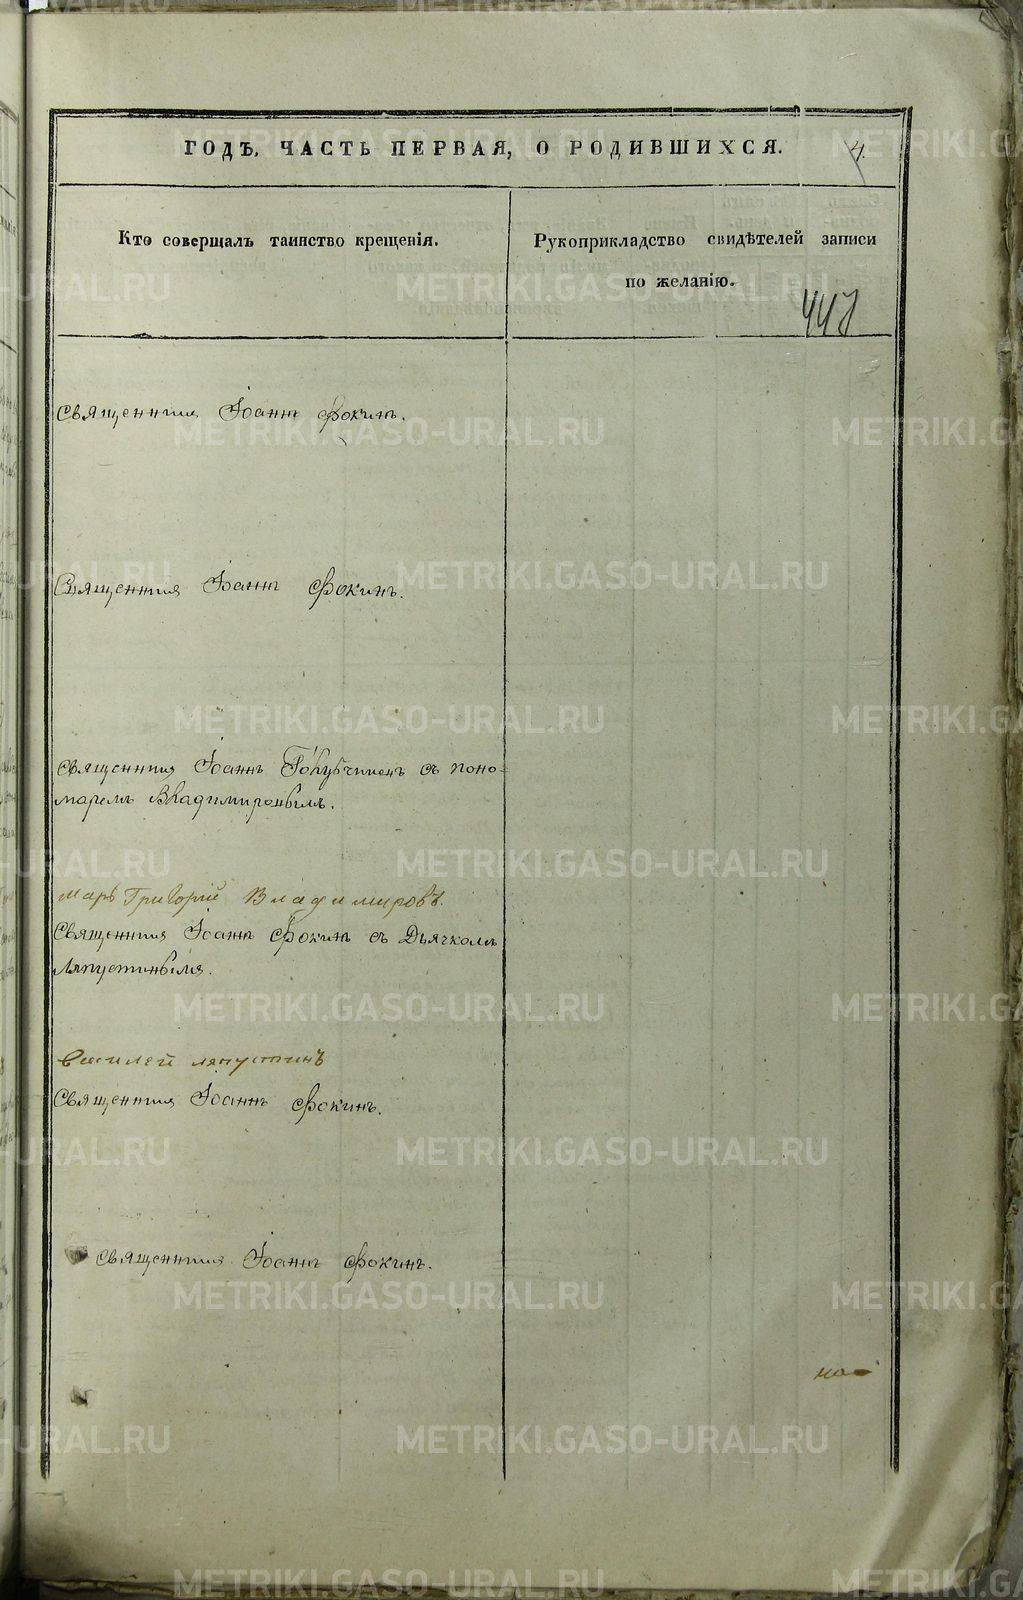 ГОДЪ, ЧАСТЬ ПЕРВАЯ, О РОДИВШИХСЯ.
4.
Кто совершалъ таинство крещенія.
Рукоприкладство свидѣтелей записи
по желанію.
447
Священникъ Іоаннъ Фокинъ.
Священникъ Іоаннъ Фокинъ.
Священникъ Іоаннъ Голубчиковъ съ поно-
маремъ Владимировымъ.
марь Григорій Владимировъ.
Священникъ Іоаннъ Фокинъ съ Дьячкомъ
Ляпустинымъ.
Василей ляпустинъ
Священникъ Іоаннъ Фокинъ.
Священникъ Іоаннъ Фокинъ.
METRIKI.GASO-URAL.RU